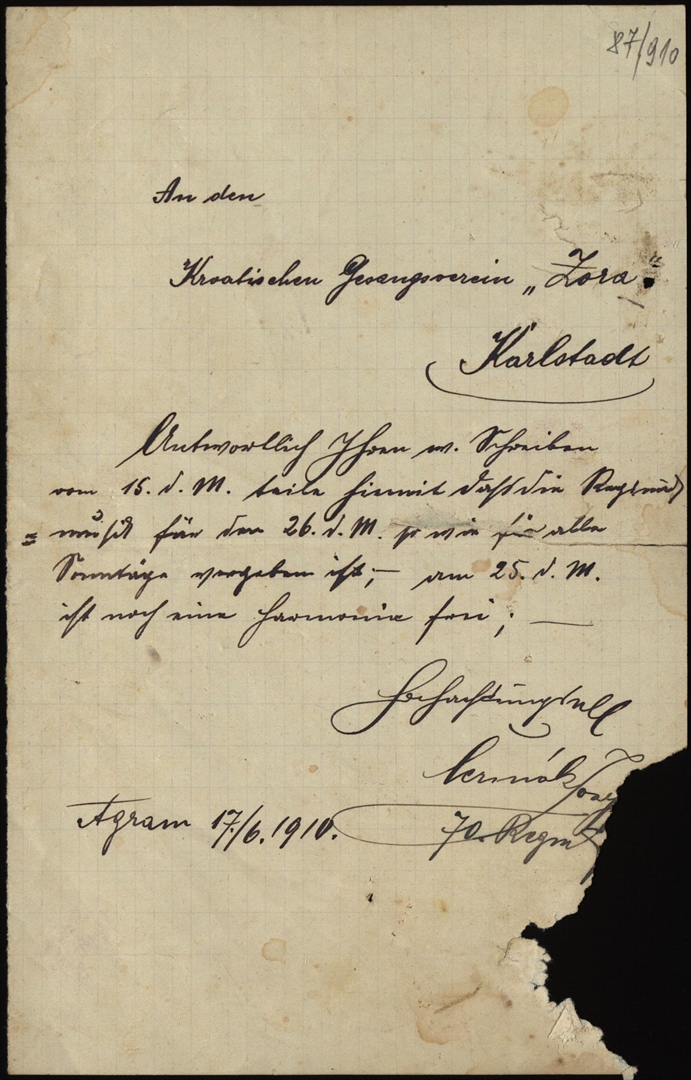 87/910
An den
Kroatischen Gesangsverein „Zora"
Karlstadt
Antwortlich Ihren w. Schreiben
vom 15. d. M. teile hiemit daß die Regiments
= musik für den 26. d. M. so wie für alle
Sonntäge vergeben ist; – am 25. d. M.
ist noch eine Harmonie frei; —
Hochachtungsvoll
Cermák
Agram 17./6. 1910.
70. Regmt